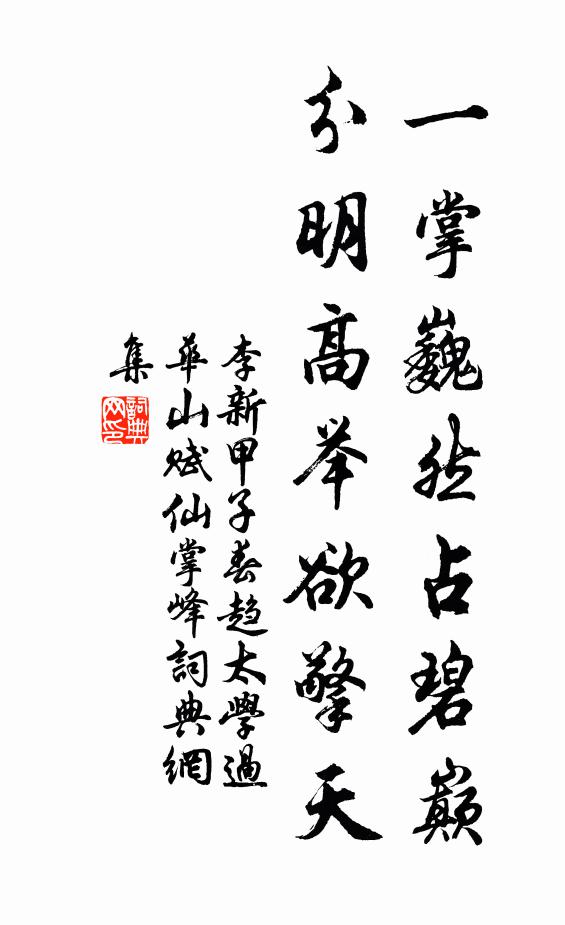 一掌巍然占碧巔
分明高举欲擎天
李新甲子春趋太學過
華山赋仙掌峰詞典網
集
詞典网印